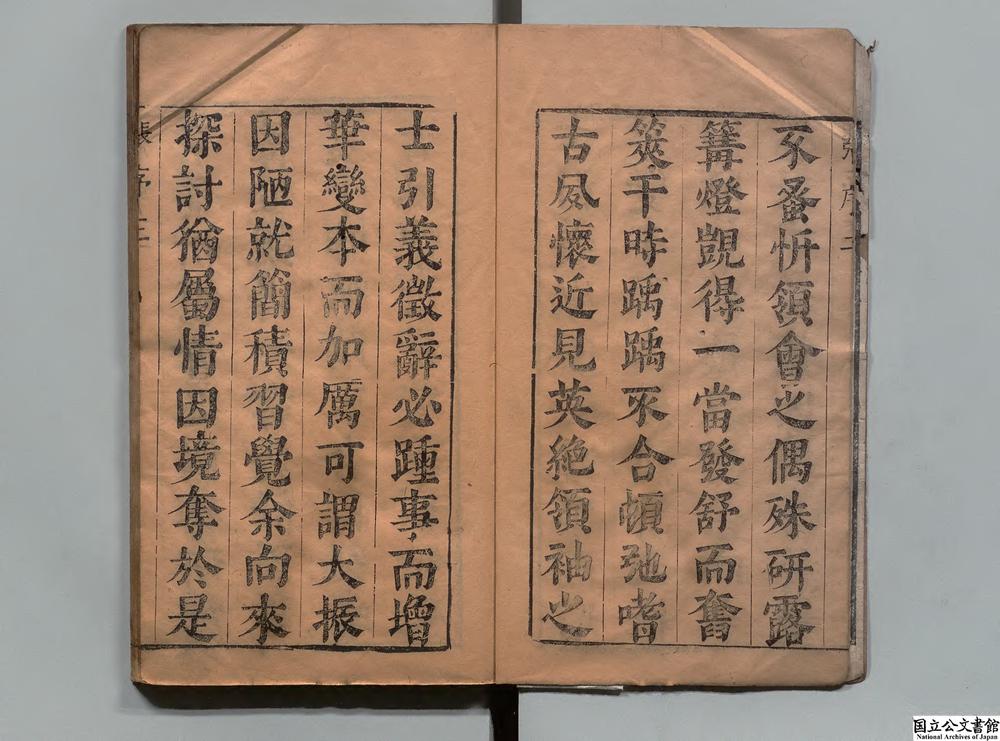 不蚤忻領會之偶殊研露
篝燈覬得一當發舒而奮
筴干時踽踽不合頓弛嗜
古夙懷近見英絶領袖之
士引義徵辭必踵事而增
華變本而加厲可謂大振
因陋就簡積習覺余向來
探討猶屬情因境奪於是
張序三
国立公文書館
National Archives of Japan